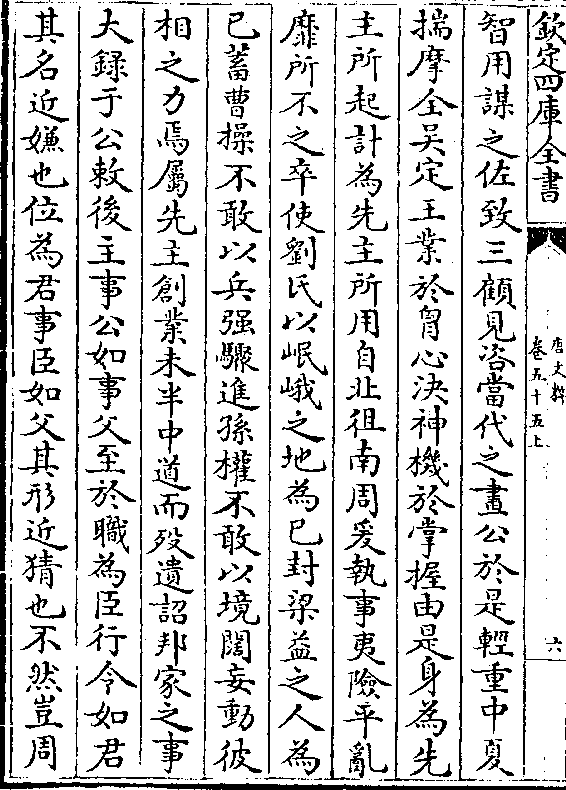 欽定四庫全書
唐文粹
卷五十五上
六
智用謀之佐致三顧見咨當代之畫公於是輕重中夏
揣摩全吴定王業於胷心決神機於掌握由是身為先
主所起計為先主所用自北徂南周爰執事夷險平亂
靡所不之卒使劉氏以岷峨之地為已封梁益之人為
已蓄曹操不敢以兵强驟進孫權不敢以境闊妄動彼
相之力焉屬先主創業未半中道而殁遺詔邦家之事
大録于公敕後主事公如事父至於職為臣行令如君
其名近嫌也位為君事臣如父其形近猜也不然豈周